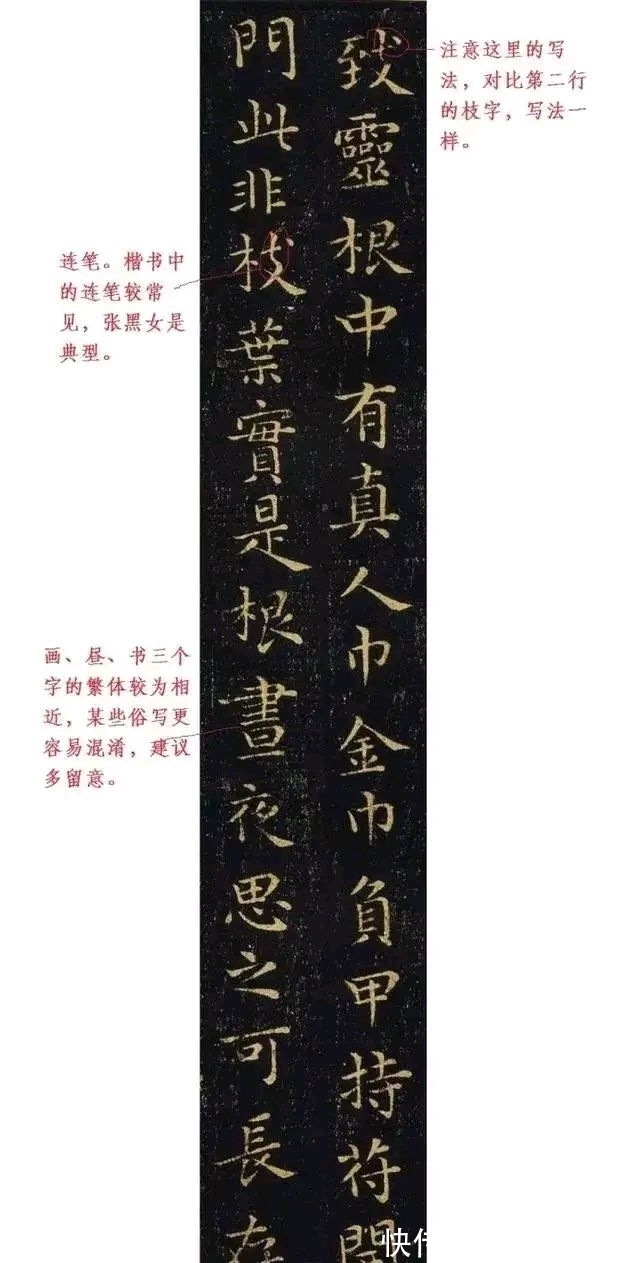 致靈根中有真人巾金巾負甲持苻開
門此非枝葉實是根晝夜思之可長存
注意这里的写
法，对比第二行
的枝字，写法一
样。
连笔。楷书中
的连笔较常
见，张黑女是
典型。
画、昼、书三个
字的繁体较为相
近，某些俗写更
容易混淆，建议
多留意。
快